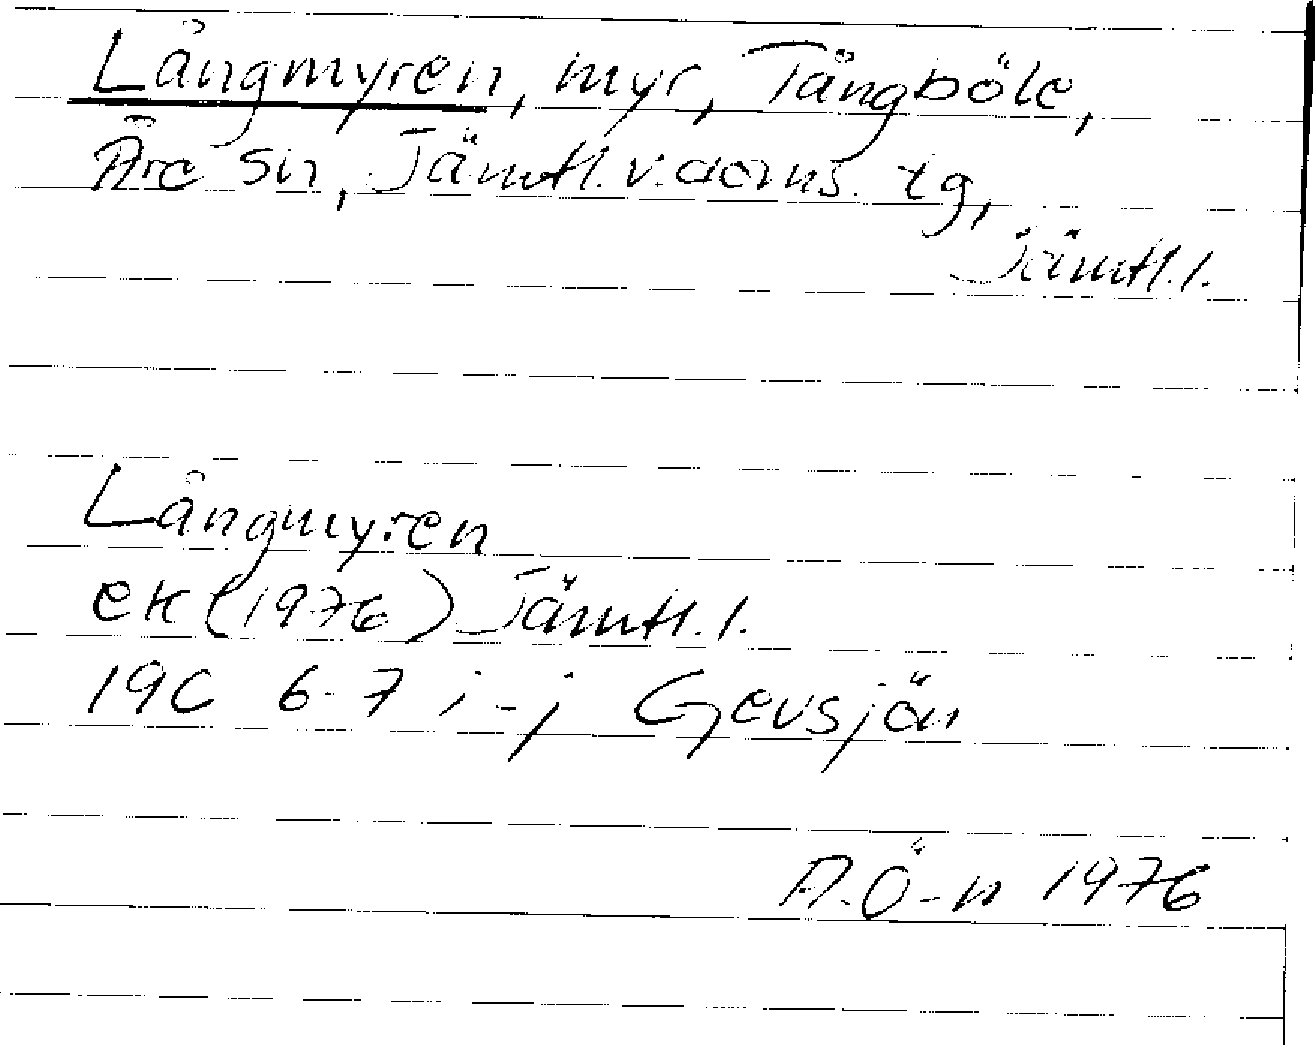 Långmyren, myr, Tängböle,
Åre sn, Jämtl. v. doms. tg,
Jämtl. l.
Långmyren
ek (1976) Jämtl. l.
19C 6-7 i-j Gevsjön
A. Ö-n 1976